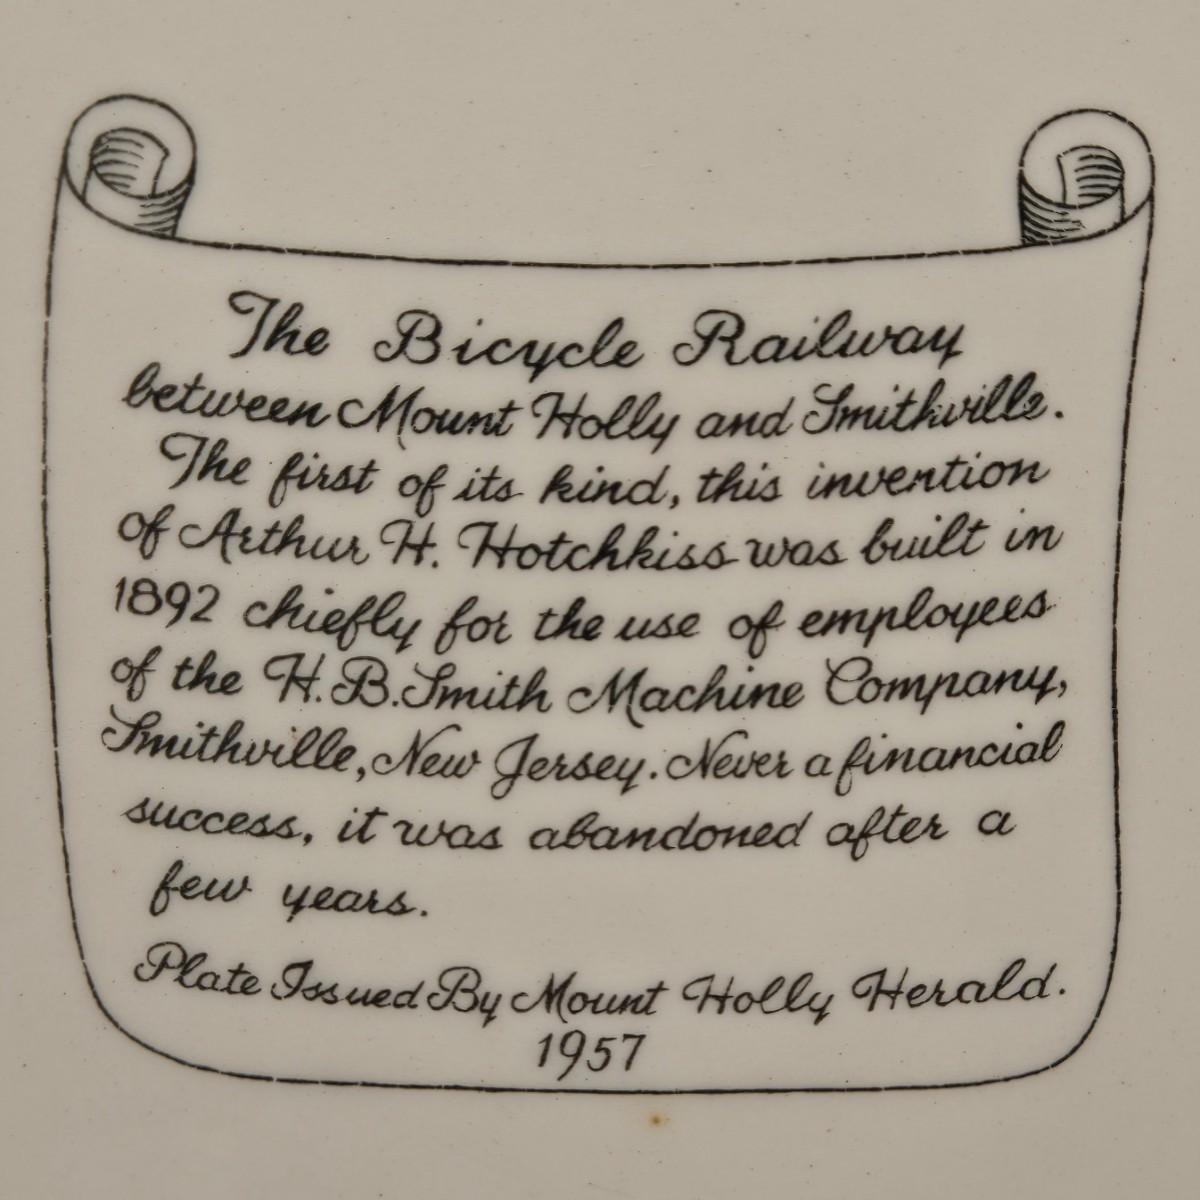 The Bicycle Railway
between Mount Holly and Smithville.
The first of its kind, this invention
of Arthur H. Hotchkiss was built in
1892 chiefly for the use of employees
of the H.B.Smith Machine Company,
Smithville, New Jersey. Never a financial
success, it was abandoned after a
few years.
Plate Issued By Mount Holly Herald.
1957